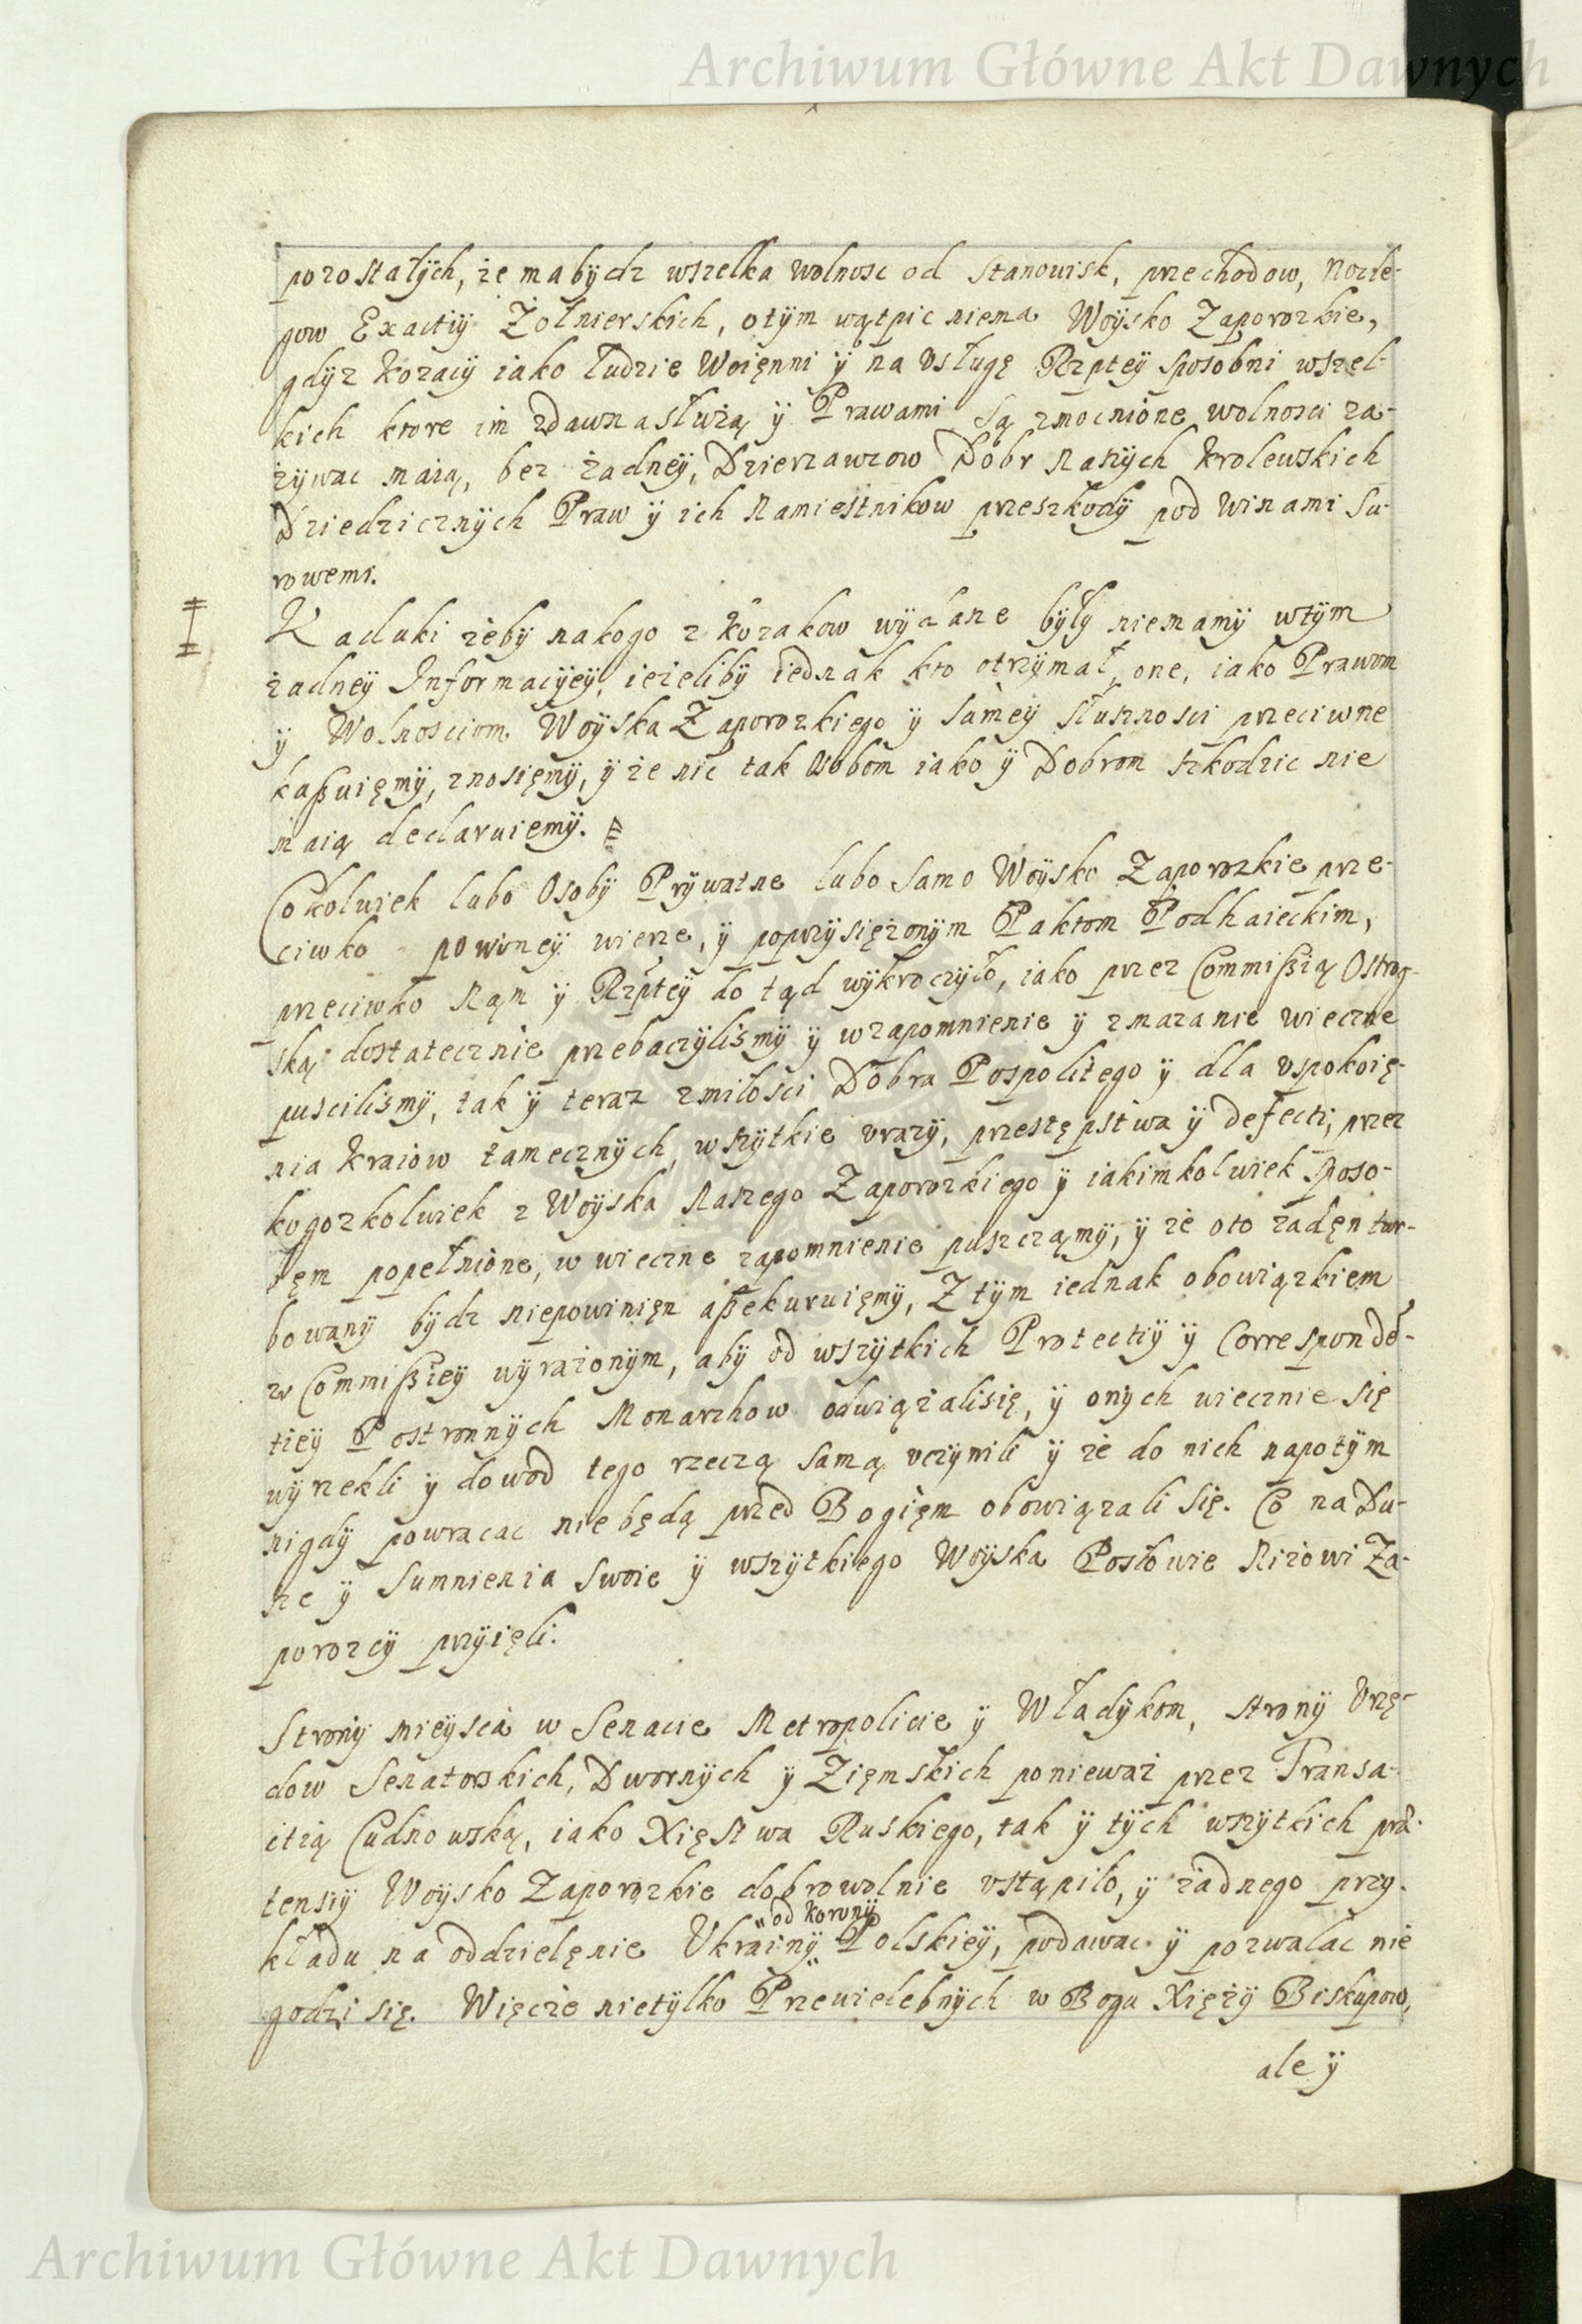 Archiwum Główne Akt Dawnych
pozostałÿch, że ma bÿdz wszelka wolnosc od Stanowisk, przechodow, Nocle-
gow Exactiÿ Żołnierskich, o tÿm wątpic niema Woÿsko Zaporozkie,
gdÿz Kozacÿ iako ludzie Woięnni ÿ na Vsługę Rzpteÿ sposobni wszel-
kich ktore im zdawna służą ÿ Prawami są zmocnione wolnosci za-
zÿwac maią, bez żadneÿ, Dzierzawcow Dobr Naszÿch Krolewskich
Dziedzicznÿch Praw ÿ ich Namiestnikow przeszkodÿ pod winami Su-
rowemi.
Kaduki żebÿ na kogo z Kozakow wÿdane bÿłÿ niemamÿ wtÿm
żadneÿ Informacÿeÿ, ieżelibÿ iednak kto otrzÿmał, one, iako Prawom
ÿ Wolnosciom Woÿska Zaporozkiego ÿ sameÿ słusznosci przeciwne
kaßuięmÿ, znosięmÿ, ÿ że nic tak Osobom iako ÿ Dobrom szkodzic nie
maią declaruiemÿ.
Cokolwiek lubo Osobÿ Prÿwatne lubo samo Woÿsko Zaporozkie prze-
ciwko powinneÿ wierze, ÿ poprzÿsiężonÿm Paktom Podhaieckim,
przeciwko Nąm ÿ Rzpteÿ do tąd wÿkroczÿło, iako przez Commißią Ostrog-
ską dostatecznie przebaczÿlismÿ ÿ w zapomnienie ÿ zmazanie wieczne
puscilismÿ, tak ÿ teraz z miłosci Dobra Pospolitego ÿ dla vspokoię-
nia Kraiow tamecznÿch, wszÿtkie vrazÿ, przestępstwa ÿ defecti, przez
kogozkolwiek z Woÿska Naszego Zaporozkiego ÿ iakimkolwiek sposo-
bęm popełnione, w wieczne zapomnienie puszcząmÿ, ÿ że oto żadęn tur-
bowanÿ bÿdz niepowinięn aßekuruięmÿ, Z tÿm iednak obowiązkiem
w Commißieÿ wÿrażonÿm, abÿ od wszÿtkich Protectiÿ ÿ Corresponde-
tieÿ Postronnÿch Monarchow odwiązali się, ÿ onÿch wiecznie się
wÿrzekli ÿ dowod tego rzeczą samą vczÿnili ÿ że do nich napotÿm
nigdÿ powracac niebędą przed Bogięm obowiązali się. Co na Du-
sze ÿ Sumnienia swoie ÿ wszÿtkiego Woÿska Posłowie Niżowi Za-
porozcÿ przÿięli.
Stronÿ mieÿsca w Senacie Metropolicie ÿ Władÿkom, stronÿ Vrzę-
dow Senatorskich, Dwornÿch ÿ Zięmskich ponieważ przez Transa-
ctią Cudnowską, iako Xięstwa Ruskiego, tak ÿ tÿch wszÿtkich præ-
tensiÿ Woÿsko Zaporozkie dobrowolnie vstąpiło, ÿ żadnego przÿ-
od Koronÿ
kładu na oddzielęnie Vkrainÿ Polskieÿ, podawac ÿ pozwalac nie
godzi się. Więcże nietÿlko Przewielebnÿch w Bogu Xiężÿ Biskupow,
ale ÿ
Archiwum Główne Akt Dawnych